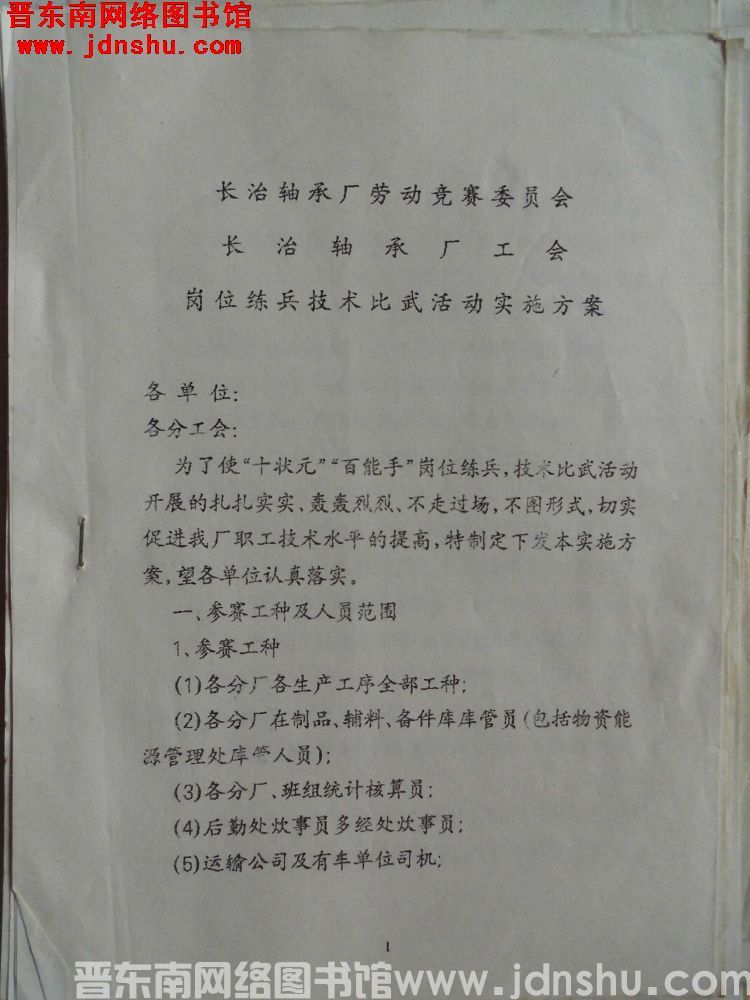 晋东南网络图书馆
www.jdnshu.com
长治轴承厂劳动竞赛委员会
长治轴承厂工会
岗位练兵技术比武活动实施方案
各单位:
各分工会:
为了使“十状元”“百能手”岗位练兵,技术比武活动
开展的扎扎实实、轰轰烈烈、不走过场,不图形式,切实
促进我厂职工技术水平的提高,特制定下发本实施方
案,望各单位认真落实。
一、参赛工种及人员范围
1、参赛工种
(1)各分厂各生产工序全部工种;
(2)各分厂在制品、辅料、备件库库管员(包括物资能
源管理处库管人员);
(3)各分厂、班组统计核算员;
(4)后勤处炊事员多经处炊事员;
(5)运输公司及有车单位司机;
1
晋东南网络图书馆www.jdnshu.com